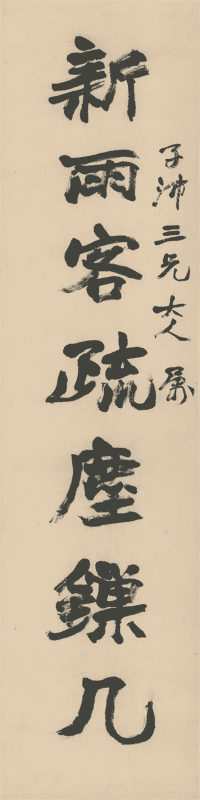 子沛三兄大人屬
新雨客疏塵鏁几